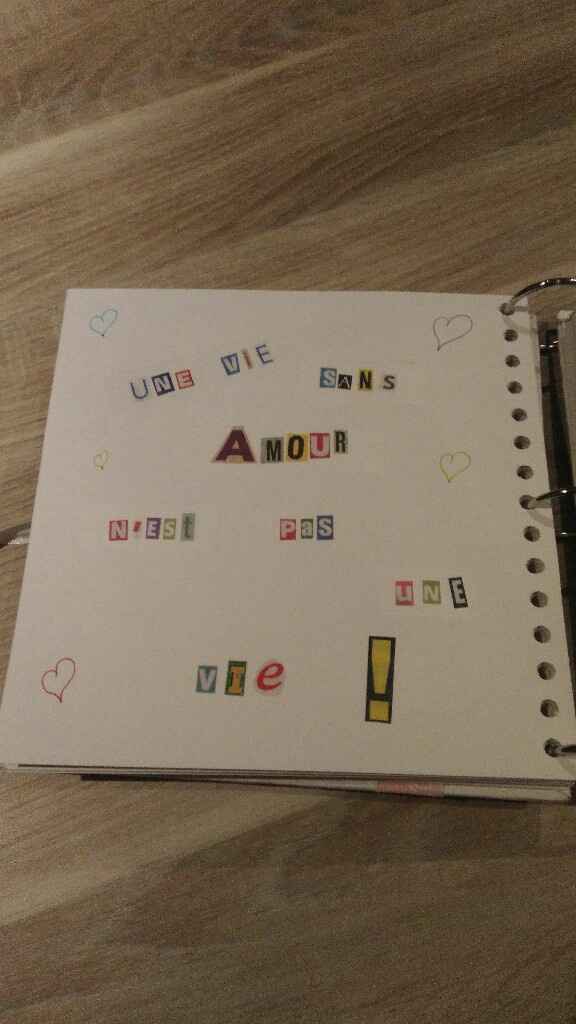 UNE VIE SANS
AMOUR
N'ESt PaS
UNE
VIe !